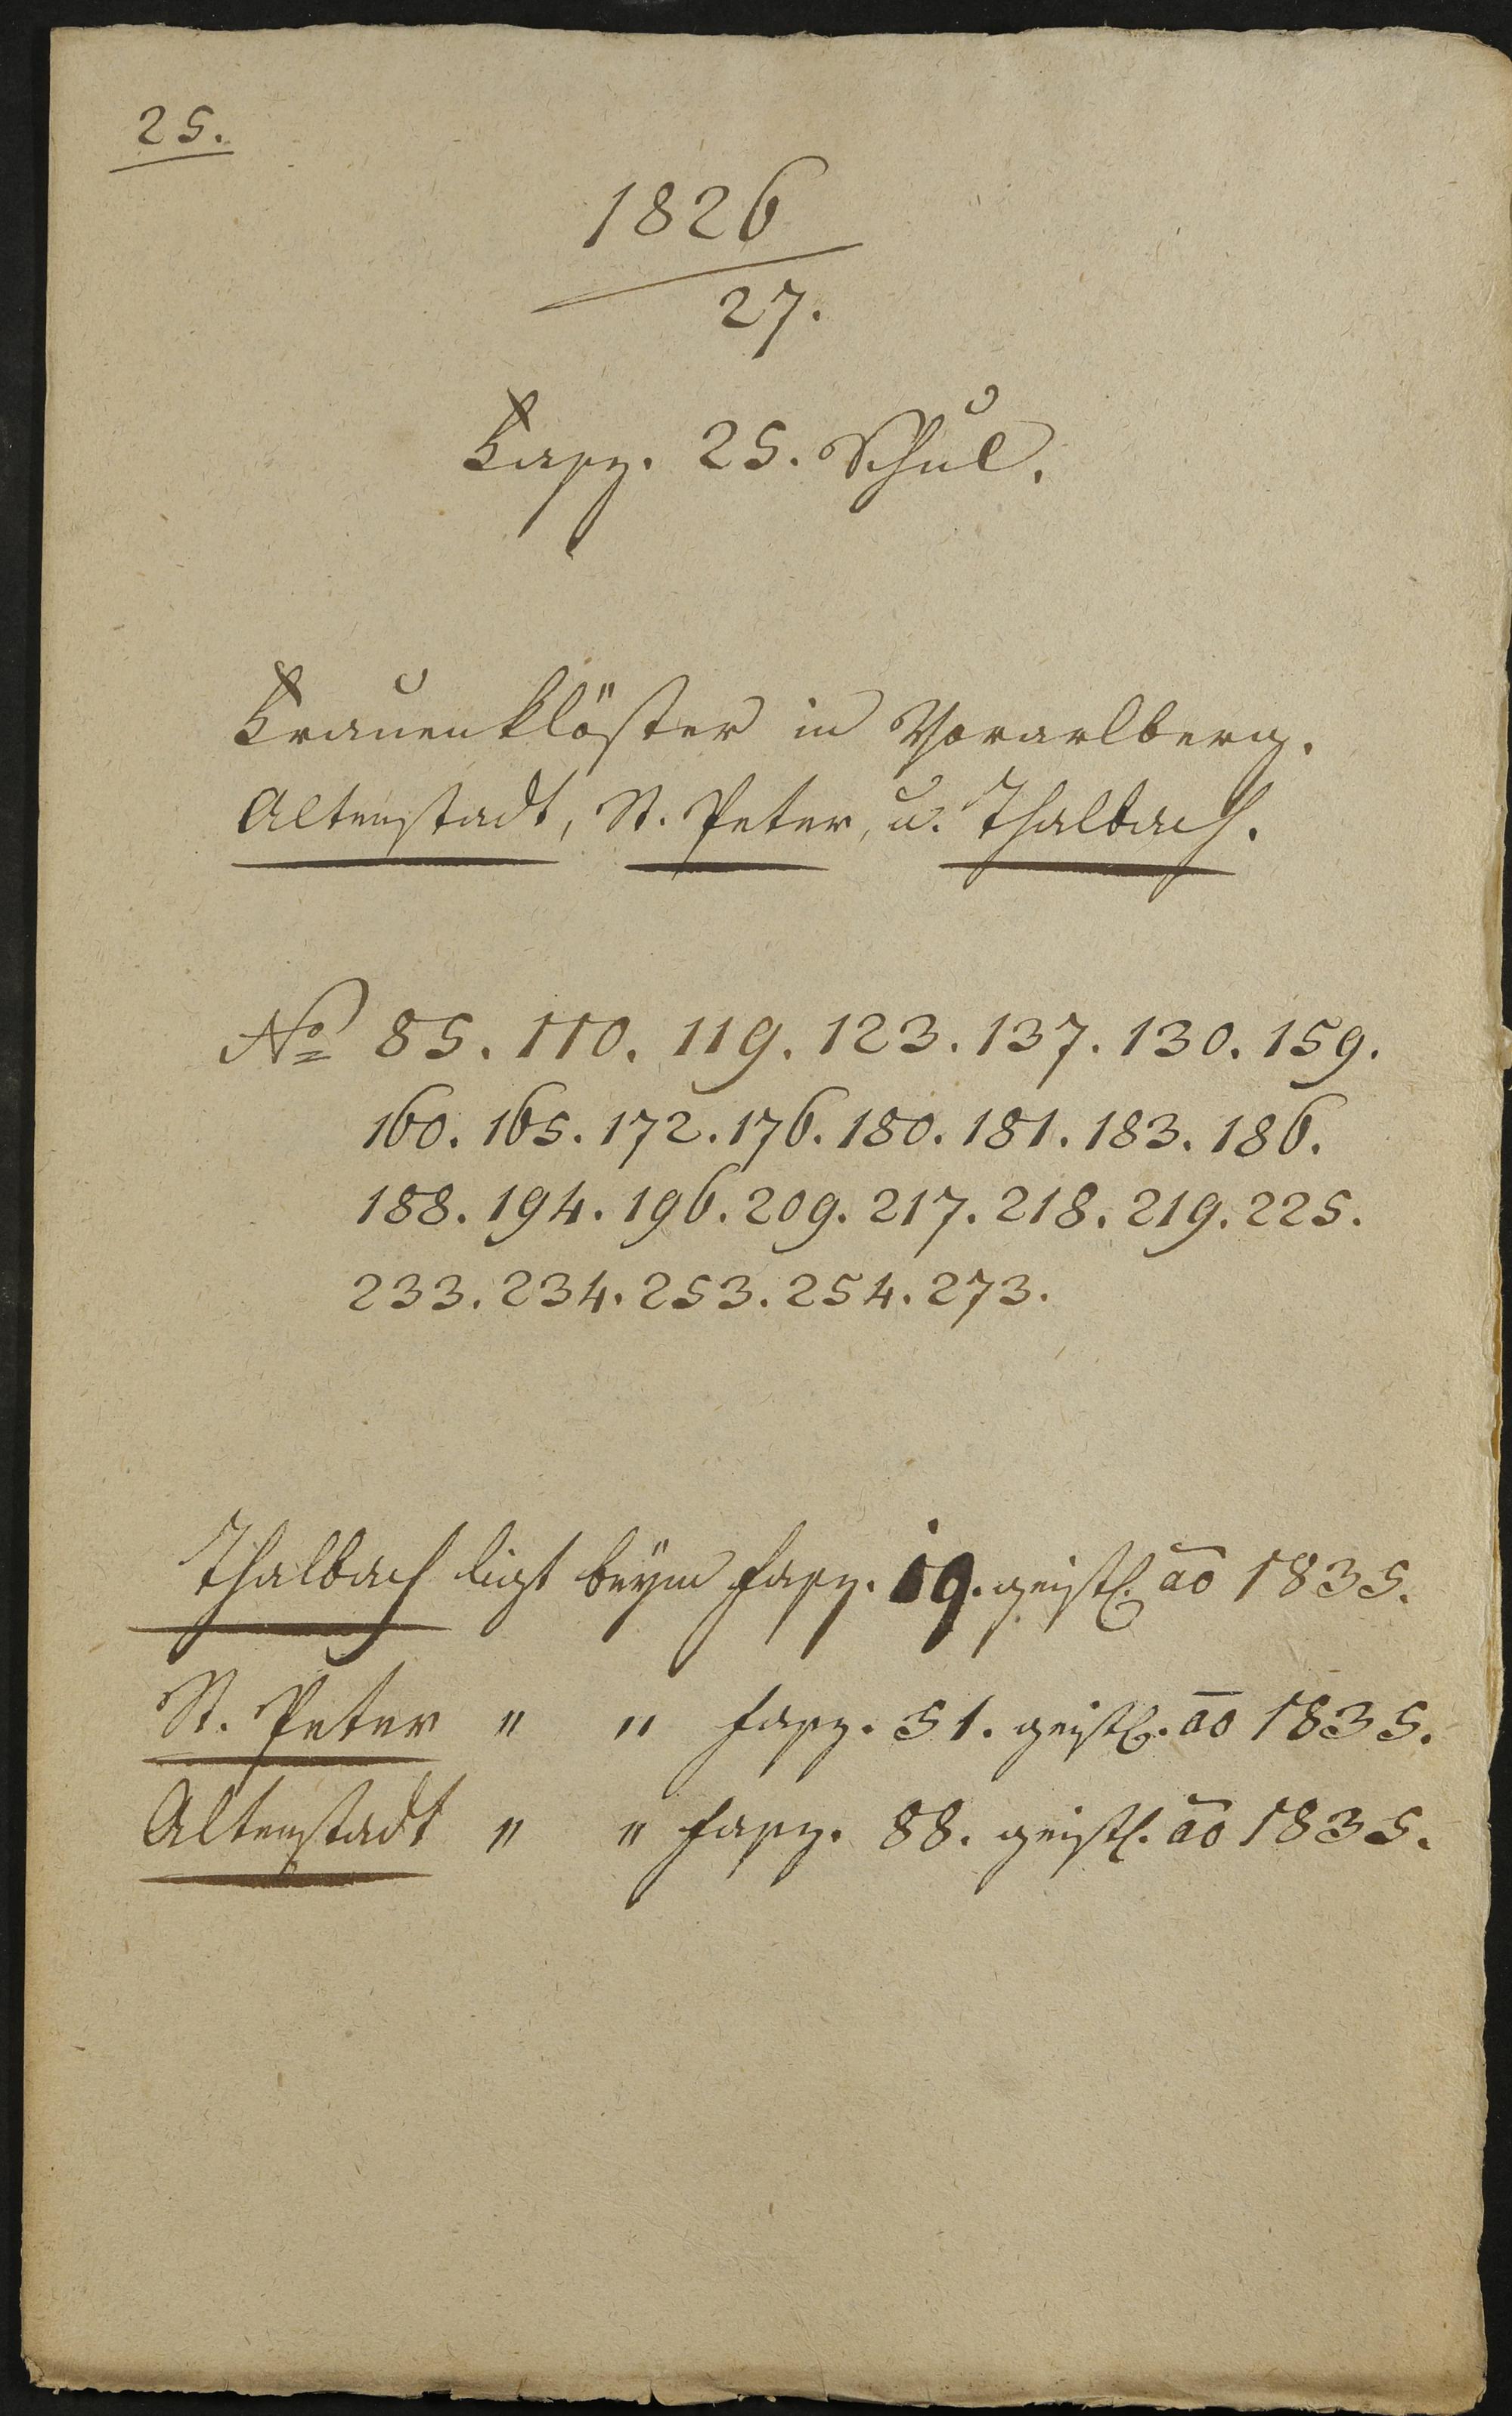 25.
1826
27.
Fasz. 25. Schul.
Frauenklöster in Vorarlberg.
Altenstadt, St. Peter, u. Thalbach.
No 85. 110. 119. 123. 137. 130. 159.
160. 165. 172. 176. 180. 181. 183. 186.
188. 194. 196. 209. 217. 218. 219. 225.
233. 234. 253. 254. 273.
Thalbach ligt beym Fasz. 19. geistl. ao 1835.
St. Peter " " Fasz. 51. geistl. ao 1835.
Altenstadt " " Fasz. 88. geistl. ao 1835.